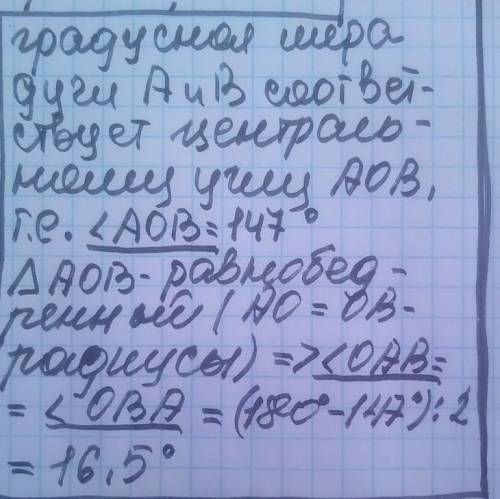 градусная мера
дуги АиВ соответ-
ствует централь-
ному углу АОВ,
т.е. <АОВ=147°
ΔАОВ-равнобед-
ренный (АО=ОВ-
радиусы) =><ОАВ=
= <ОВА = (180°-147°):2
= 16,5°